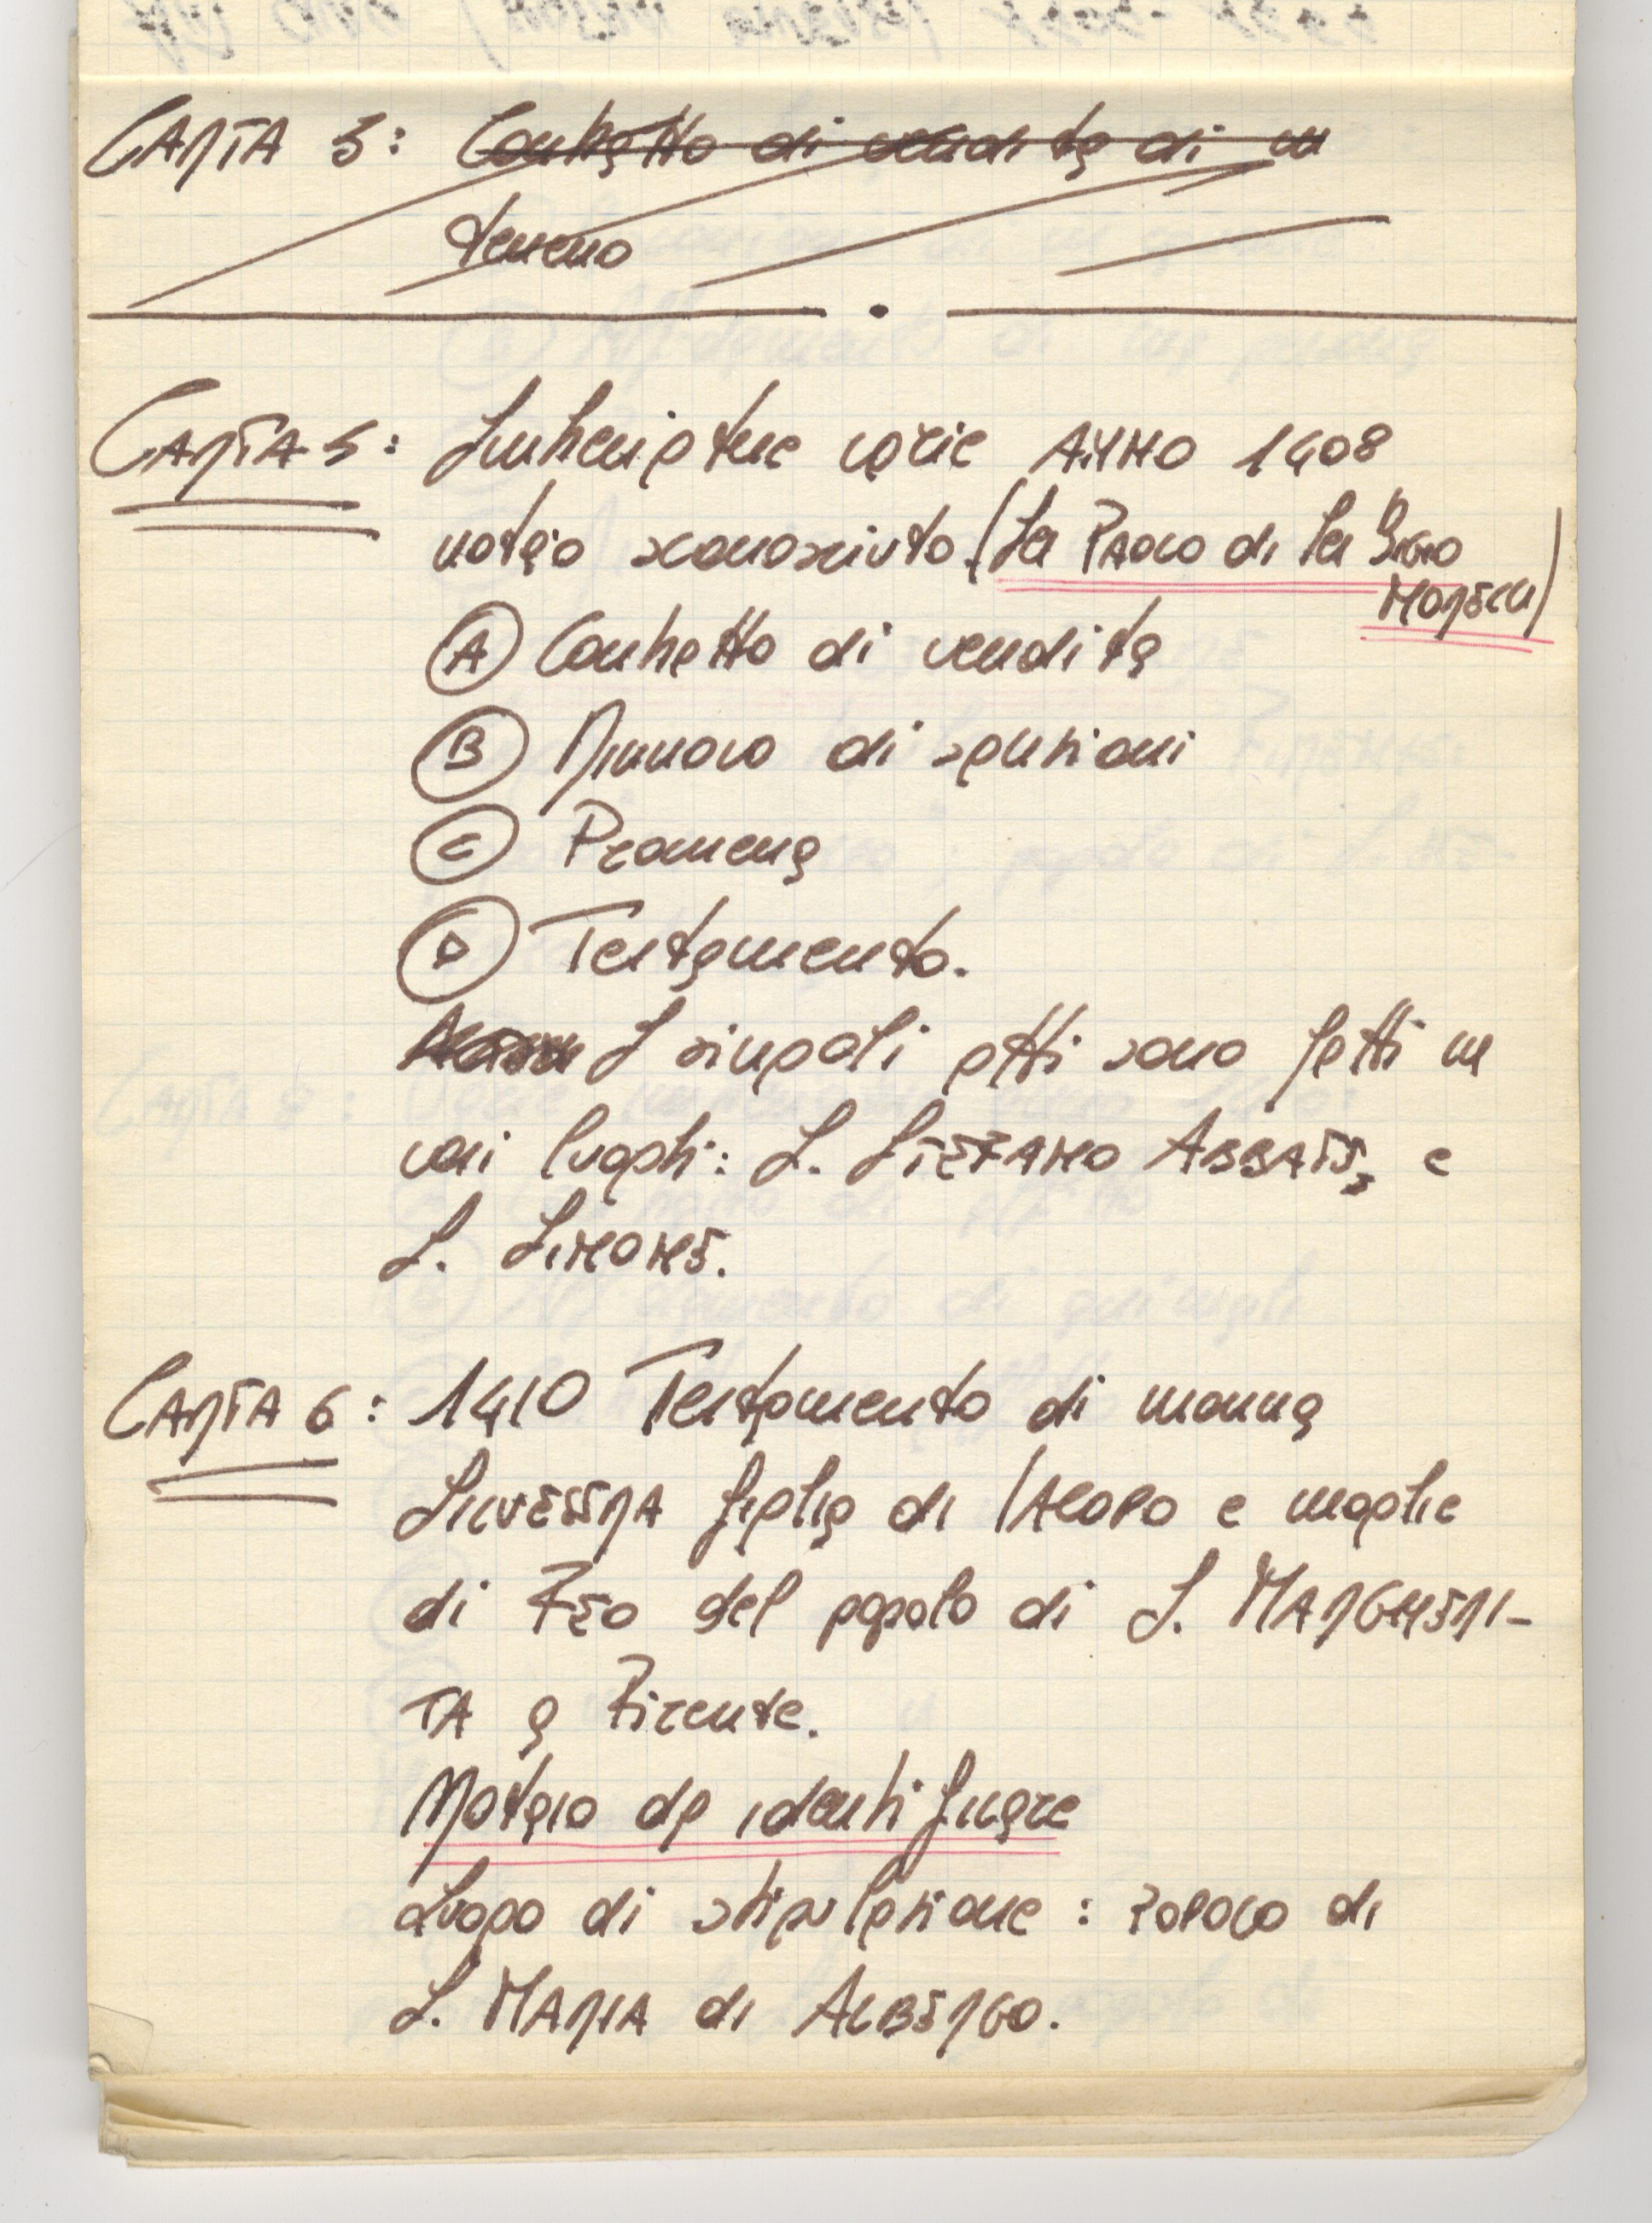 CARTA 5: Contratto di vendita di un
terreno
CARTA 5: Imbreviature varie ANNO 1408
notaio sconosciuto (Ser PAOLO di Ser
A Contratto di vendita
B Rinnovo di sponsioni
C Promessa
D Testamento.
I singoli atti sono fatti in
vari luoghi: S. STEFANO ABBATIS, e
S. SIMONE.
CARTA 6: 1410 Testamento di monna
SILVESTRA figlia di IACOPO e moglie
di FEO del popolo di S. MARGHERI-
TA a Firenze.
Notaio da identificare
Luogo di stipulazione: POPOLO di
S. MARIA di ALBERGO.